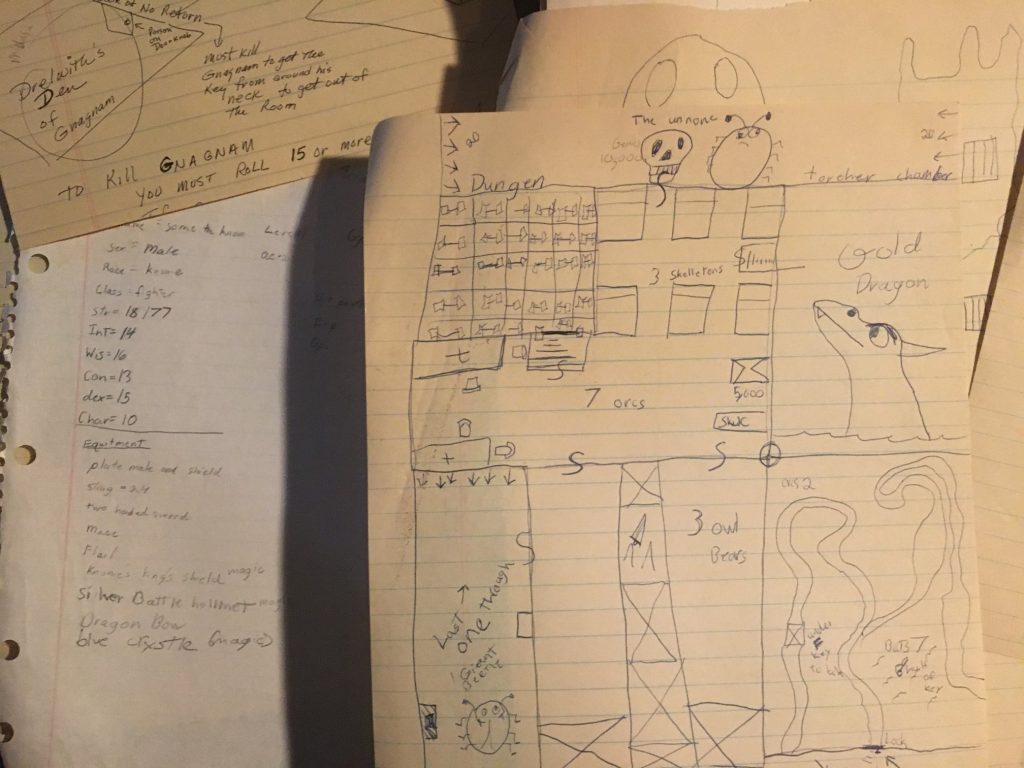 of No Return
Person
on
Doorknob
Drelwith's
Den
of
Gnagnam
must kill
Gnagnam to get the
key from around his
neck to get out of
The Room
TO Kill GNAGNAM
YOU MUST ROLL 15 or more
Sex = Male
Race -
Class = fighter
Str = 18/77
Int = 14
Wis = 16
Con = 13
dex = 15
Char = 10
Equitment
plate male and shield
two handed sword
Mace
Flail
king's shield magic
Silver Battle hellmet
Dragon Bow
blue crystle (magic)
20
The unnone
10,000
20
Dungen
torcher chamber
3 skeletons
Gold
Dragon
7 orcs
5,000
S
S
3 owl
Bears
Last
one though
Bats 7
of
key
key
Lock